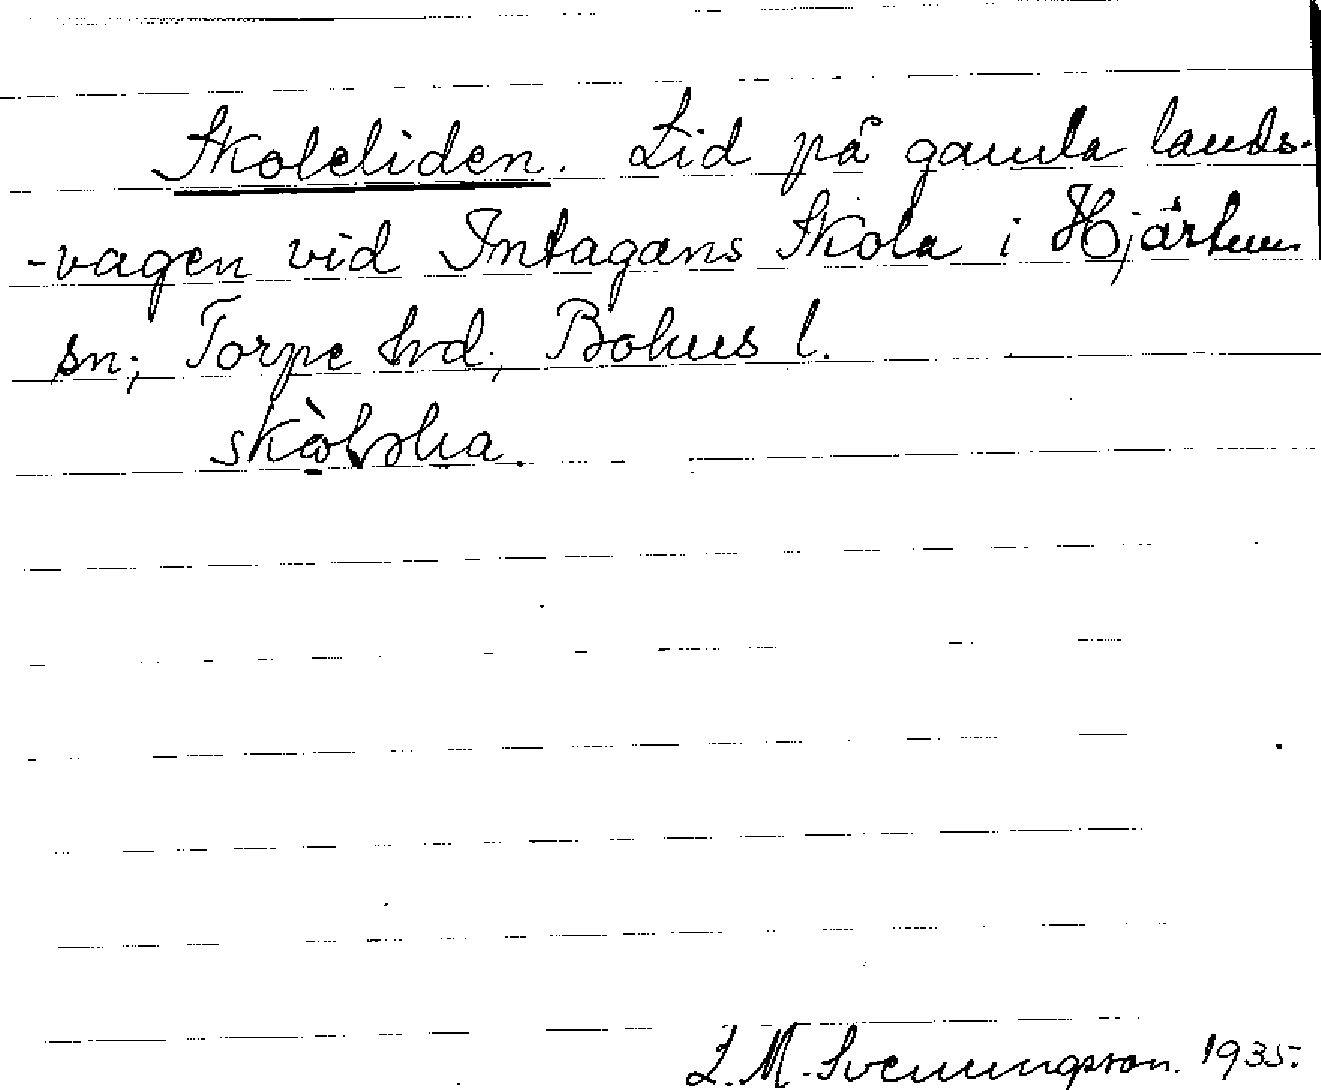 Skoleliden. Lid på gamla lands-
-vagen vid Intagans Skola i Hjärtum
sn; Torpe hrd, Bohus l.
L. M. Svenungsson. 1935.